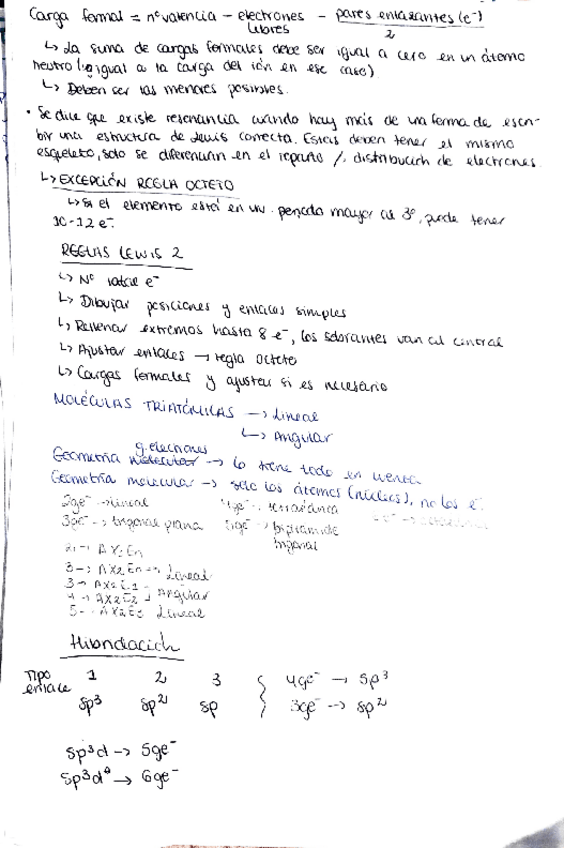 Carga formal = nº valencia - electrones libres - pares enlazantes (e⁻) / 2
↳ La suma de cargas formales debe ser igual a cero en un átomo
neutro (o igual a la carga del ión en ese caso)
↳ Deben ser las menores posibles.
• Se dice que existe resonancia cuando hay más de una forma de escri-
bir una estructura de Lewis correcta. Estas deben tener el mismo
esqueleto, solo se diferencian en el reparto / distribución de electrones.
↳ EXCEPCIÓN REGLA OCTETO
↳ Si el elemento está en un periodo mayor al 3º, puede tener
10-12 e⁻.
REGLAS LEWIS 2
↳ Nº total e⁻
↳ Dibujar posiciones y enlaces simples
↳ Rellenar extremos hasta 8 e⁻, los sobrantes van al central
↳ Ajustar enlaces → regla octeto
↳ Cargas formales y ajustar si es necesario
MOLÉCULAS TRIATÓMICAS → Lineal
↳ Angular
g. electrones
Geometría molecular → lo tiene todo en cuenta
Geometría molecular → solo los átomos (núcleos), no los e⁻
2ge⁻ → lineal 4ge⁻ → tetraédrica
3ge⁻ → trigonal plana 5ge⁻ → bipirámide trigonal
2 → AX2En
3 → AX2En → Lineal
3 → AX2E1
4 → AX2E2 Angular
5 → AX2E3 Lineal
Hibridación
Tipo enlace 1 2 3 4ge⁻ → sp³
sp³ sp² sp 3ge⁻ → sp²
sp³d → 5ge⁻
sp³d² → 6ge⁻